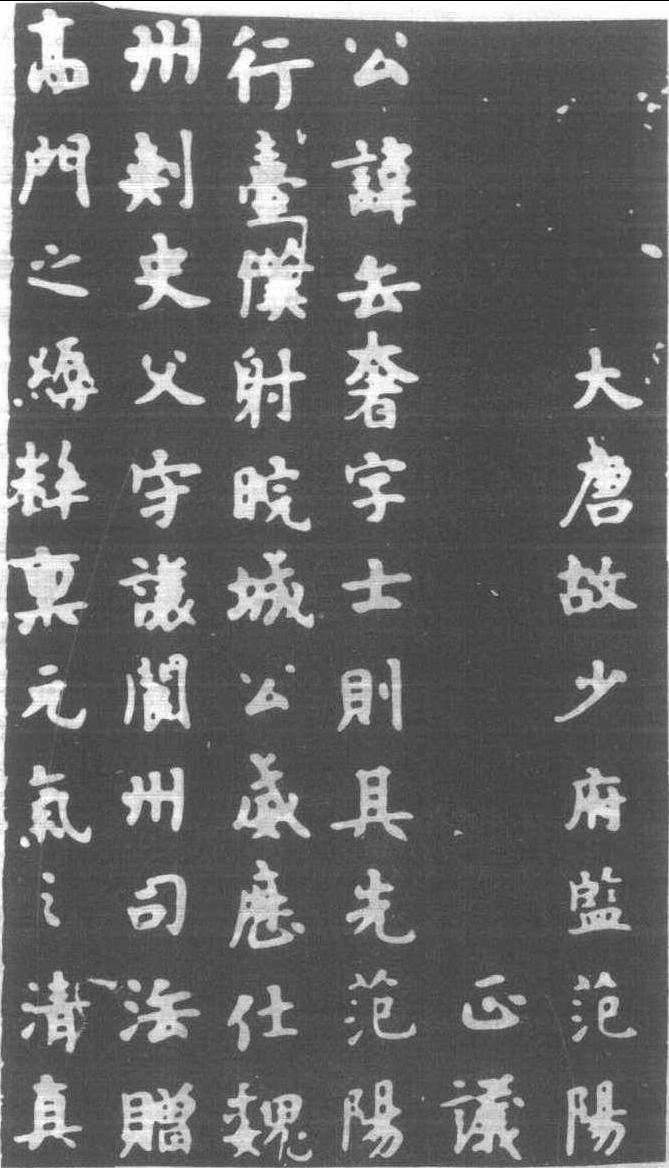 大唐故少府監范陽
正議
公諱去奢字士則其先范陽
行臺僕射晥城公威應仕魏
州刺史父守讓閬州司法贈
高門之粹稟元氣之清真